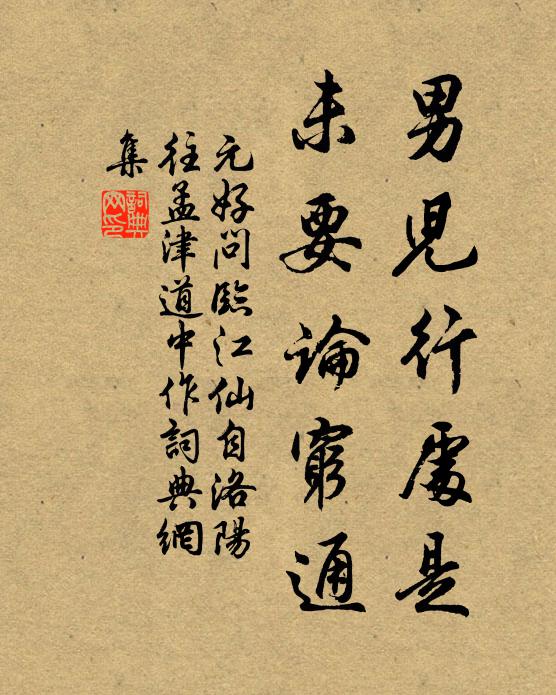 男兒行處是
未要論窮通
元好問臨江仙自洛陽
往孟津道中作詞典網
集
詞典
网印